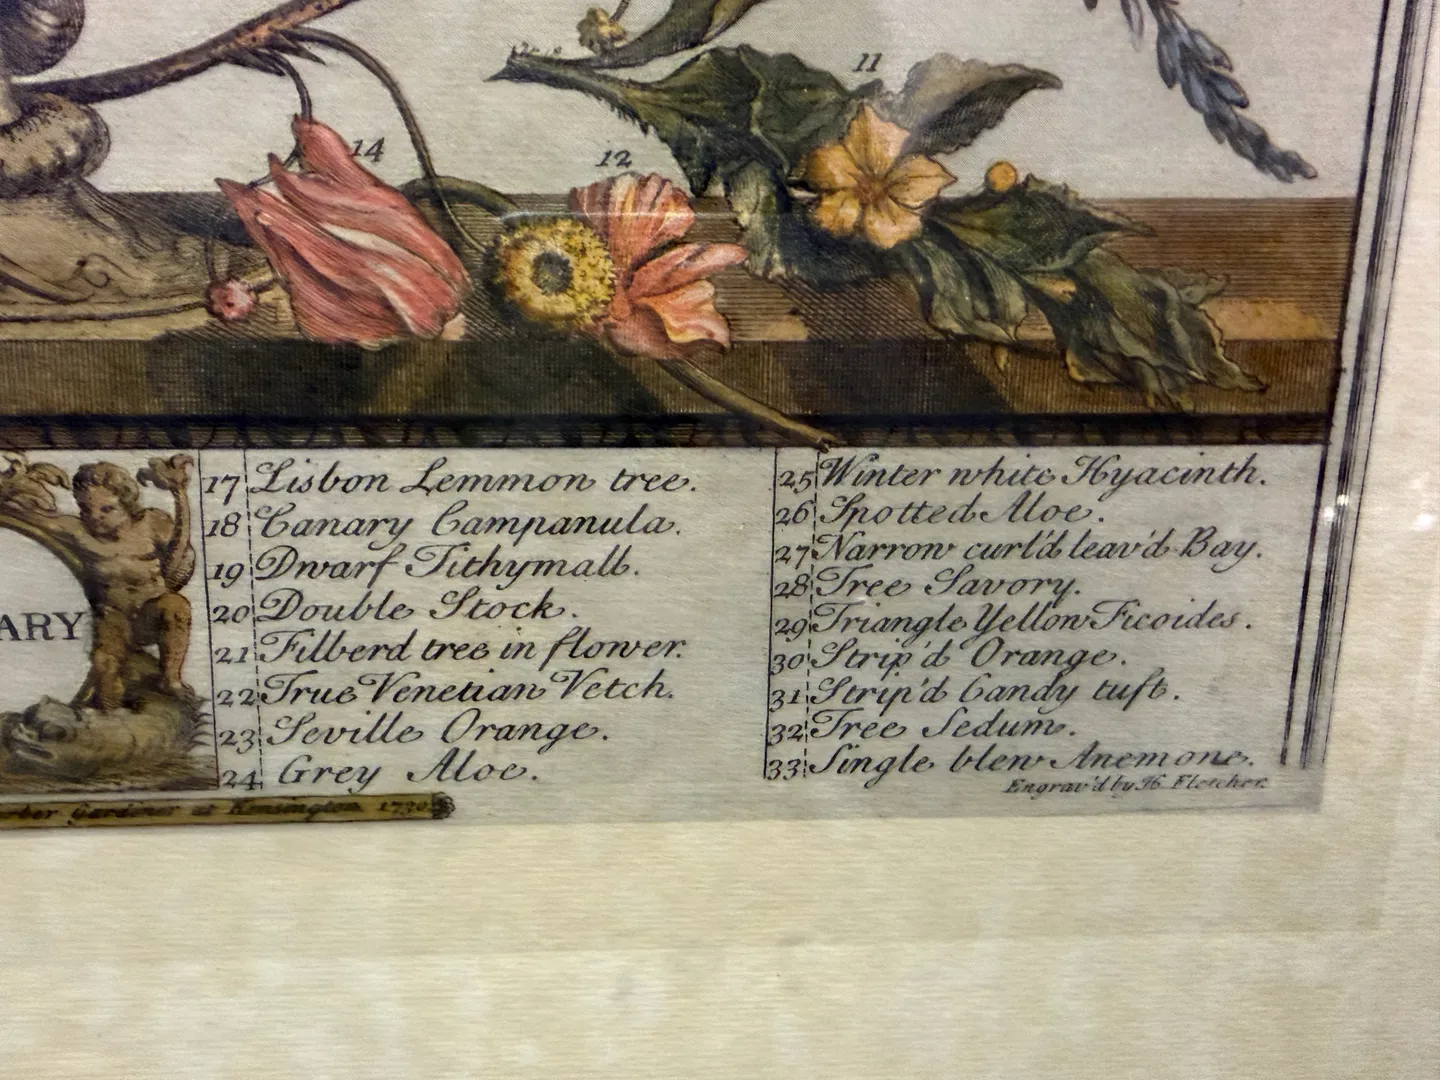 11
14
12
ARY
17 Lisbon Lemmon tree.
18 Canary Campanula.
19 Dwarf Tithymall.
20 Double Stock.
21 Filberd tree in flower.
22 True Venetian Vetch.
23 Seville Orange.
24 Grey Aloe.
25 Winter white Hyacinth.
26 Spotted Aloe.
27 Narrow curl'd leav'd Bay.
28 Tree Savory.
29 Triangle Yellow Ficoides.
30 Strip'd Orange.
31 Strip'd Candy tuft.
32 Tree Sedum.
33 Single blew Anemone.
Engrav'd by H. Fletcher.
rber Gardiner at Kensington 1730